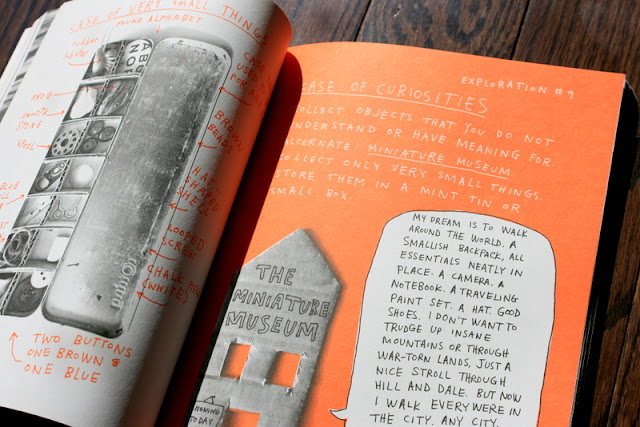 CASE OF VERY SMALL THINGS
FOUND ALPHABET
RUBBER
ABC
NO
FROG
WHITE
STONE
SPOOL
BLUE
CASE
USED
FOR
BROWN
BEAD
HAT-
SHAPED
SHELL
LOOPED
SCREW
CHALK
(WHITE)
TWO BUTTONS
ONE BROWN &
ONE BLUE
EXPLORATION #9
CASE OF CURIOSITIES
COLLECT OBJECTS THAT YOU DO NOT
UNDERSTAND OR HAVE MEANING FOR.
ALTERNATE MINIATURE MUSEUM
COLLECT ONLY VERY SMALL THINGS.
STORE THEM IN A MINT TIN OR
SMALL BOX.
THE
MINIATURE
MUSEUM
SHOWING
TODAY
MY DREAM IS TO WALK
AROUND THE WORLD. A
SMALLISH BACKPACK, ALL
ESSENTIALS NEATLY IN
PLACE. A CAMERA. A
NOTEBOOK. A TRAVELING
PAINT SET. A HAT. GOOD
SHOES. I DON'T WANT TO
TRUDGE UP INSANE
MOUNTAINS OR THROUGH
WAR-TORN LANDS, JUST A
NICE STROLL THROUGH
HILL AND DALE. BUT NOW
I WALK EVERYWERE IN
THE CITY. ANY CITY.